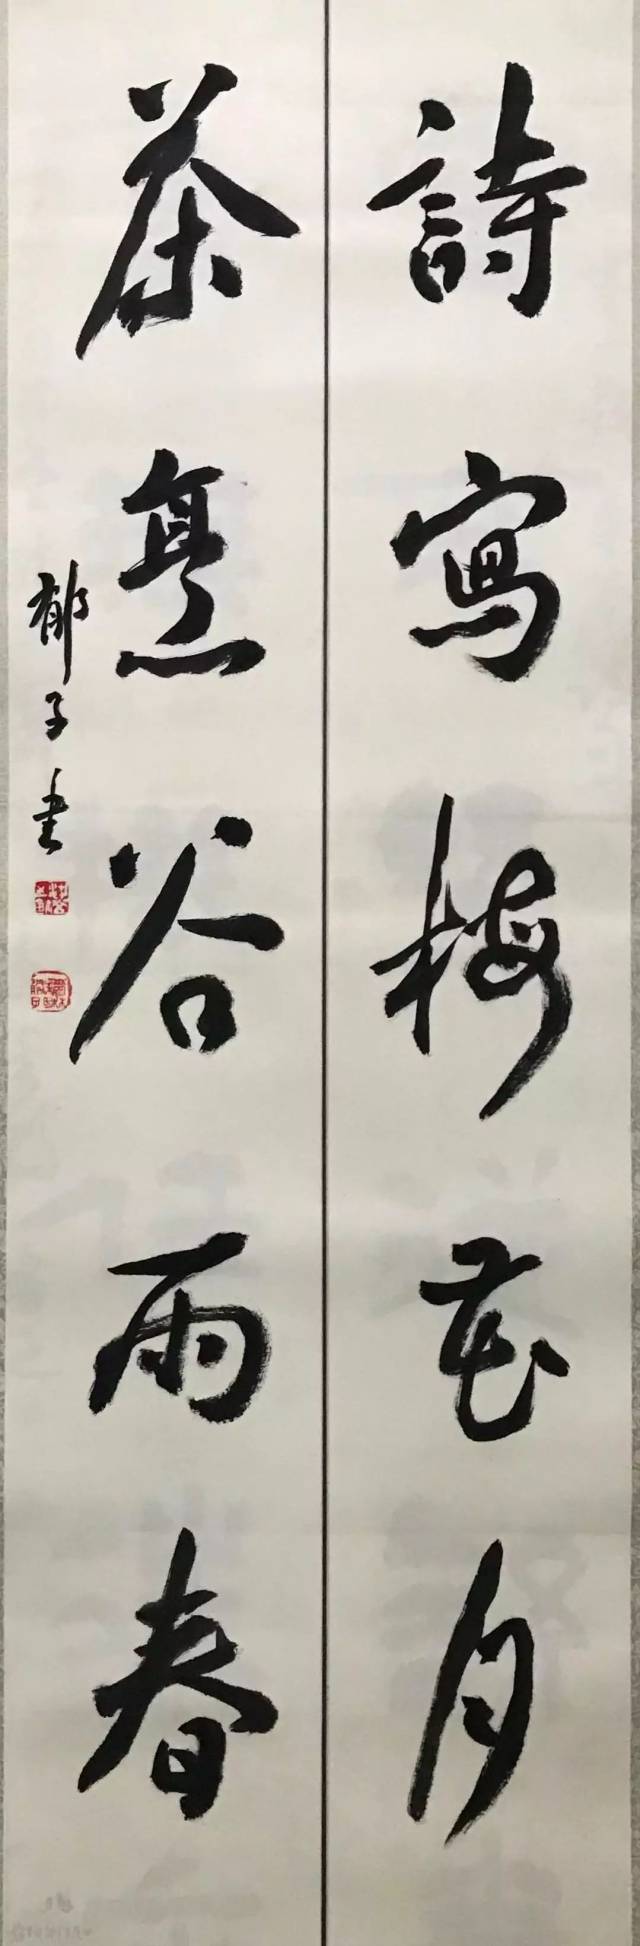 詩寫梅花月
茶熹谷雨春
郁子书